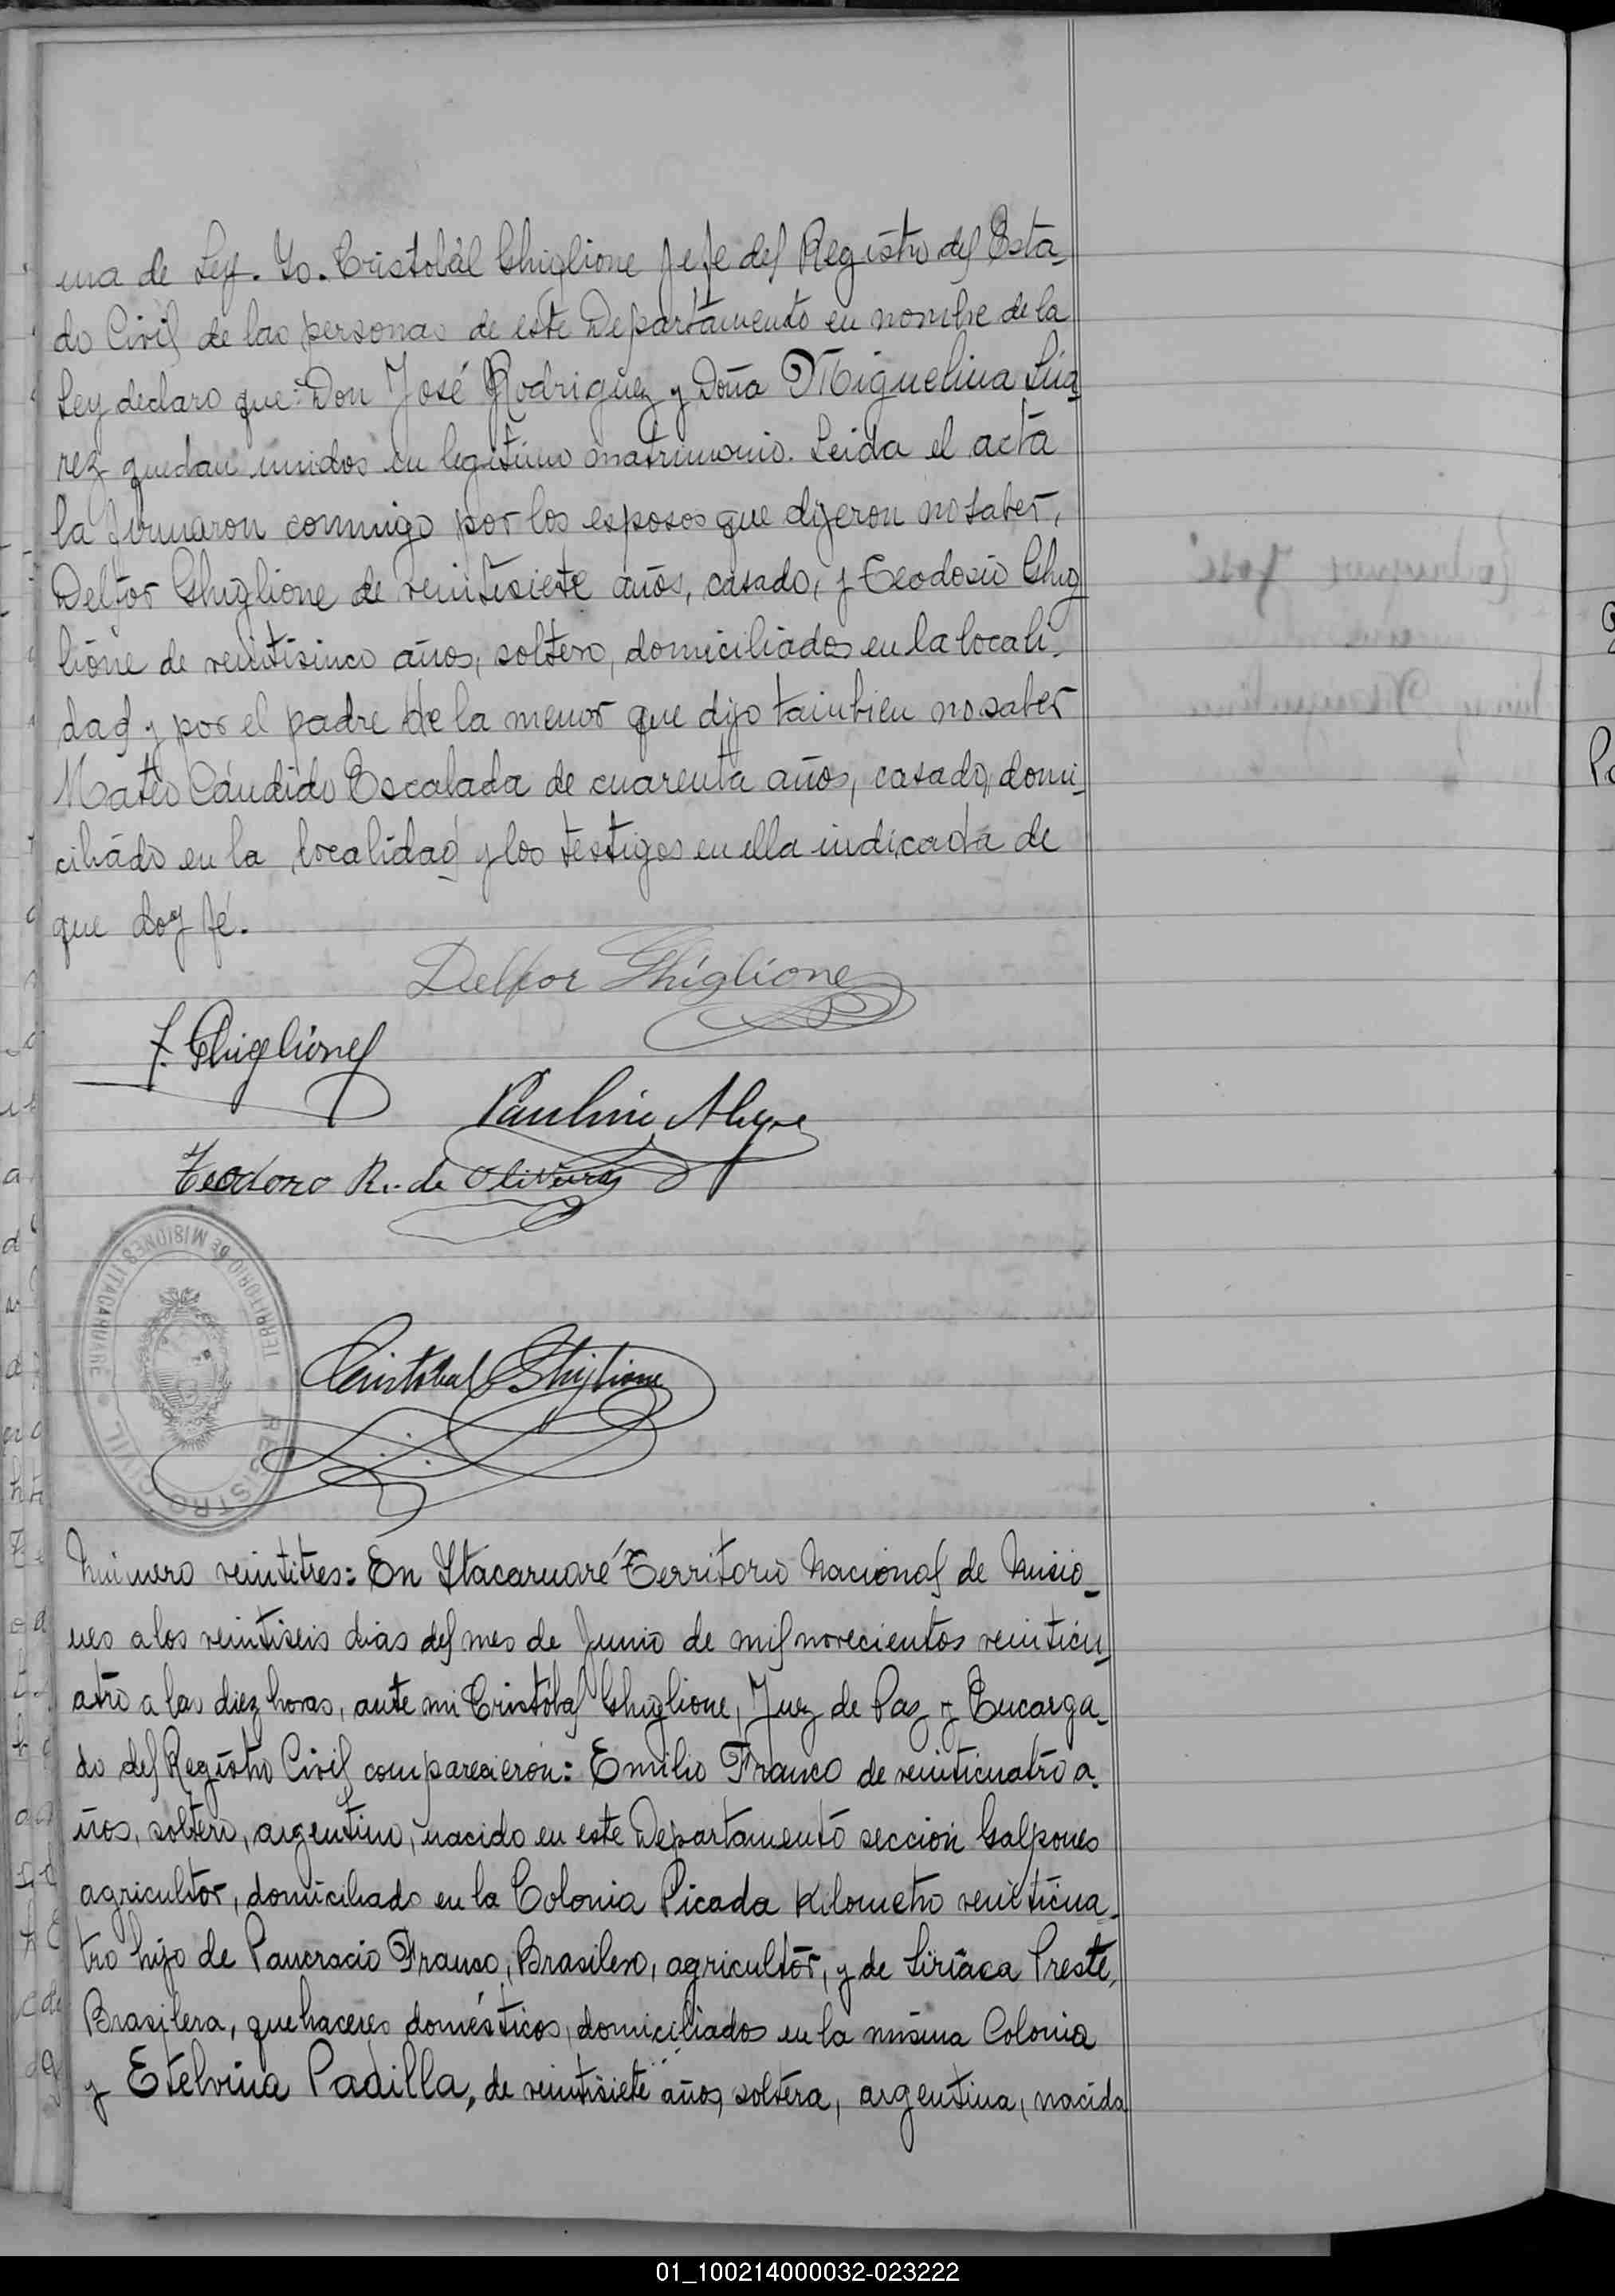 ma de Ley. Yo. Cristobál Ghiglione Jefe del Registro del Esta_
do Civil de las personas de este Departamento en nombre de la
Ley declaro que: Don José Rodriguez y Doña Miguelina Suá_
rez quedan unidos en legitimo matrimonio. Leida el acta
la firmaron conmigo por los esposos que dijeron no saber,
Delfor Ghiglione de veintisiete años, casado, y Teodosio Ghig_
lione de veintisinco años, soltero, domiciliados en la locali_
dad y por el padre de la menor que dijo tambien no saber
Mateo Cándido Escalada de cuarenta años, casado, domi_
ciliado en la localidad y los testigos en ella indicada de
que doy fé.
Delfor Ghiglione
T. Ghiglione
Paulino
Teodoro R. de Olivera
TERRITORIO DE MISIONES ITACARUARE
REGISTRO CIVIL
Cristobal Ghiglione
Número veintitres: En Ytacaruaré Territorio Nacional de Misio_
nes a los veintiseis dias del mes de Junio de mil novecientos veinticu_
atro a las diez horas, ante mi Cristóbal Ghiglione, Juez de Paz y Encarga_
do del Registro Civil comparecieron: Emilio Franco de veinticuatro a_
ños, soltero, argentino, nacido en este Departamento sección Galpones
agricultor, domiciliado en la Colonia Picada Kilometro veinticua_
tro hijo de Pancracio Franco, Brasilero, agricultor, y de Siriaca Preste,
Brasilera, quehaceres domésticos, domiciliados en la misma Colonia
y Etelvina Padilla, de veintisiete años, soltera, argentina, nacida
01_100214000032-023222